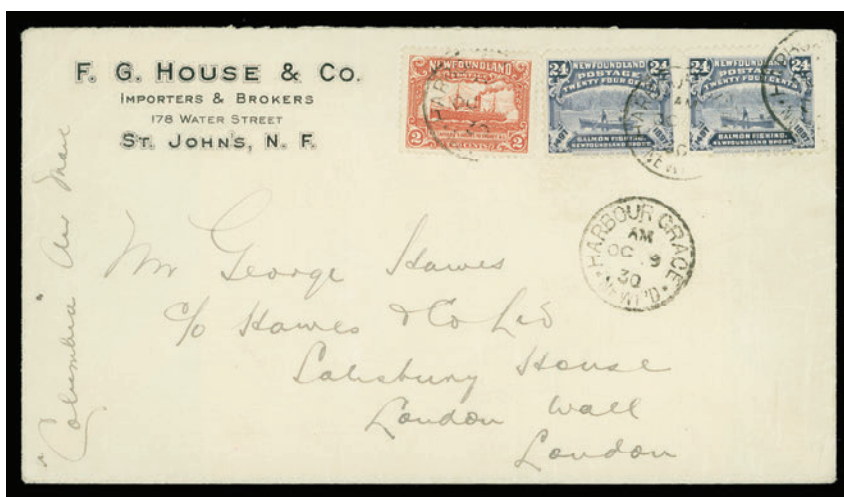 F. G. HOUSE & CO.
IMPORTERS & BROKERS
178 WATER STREET
ST. JOHN'S, N. F.
NEWFOUNDLAND
2 CENTS 2
24 NEWFOUNDLAND 24
POSTAGE
TWENTY FOUR CENTS
1497 1897
SALMON FISHING.
NEWFOUNDLAND SPORT.
24 NEWFOUNDLAND 24
POSTAGE
TWENTY FOUR CENTS
1497 1897
SALMON FISHING.
NEWFOUNDLAND SPORT.
HARBOUR GRACE
AM
OC 9
30
NEWF'D
"Columbia" Air Mail
Mr George Hawes
c/o Hawes & Co Ltd
Salisbury House
London Wall
London